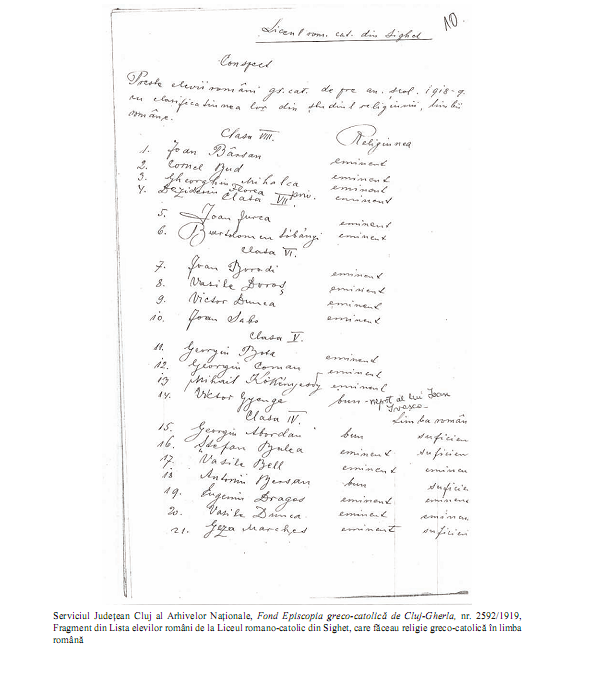 10.
Liceul rom. cat. din Sighet
Conspect
Peste elevii români gr. cat. de pre an. scol. 1918-9.
cu clasificatiunea lor din studiul religiunii, limbii
române.
Clasa VIII. Religiunea
1. Ioan Bârsan eminent
2. Cornel Bud eminent
3. Gheorghiu Mihalca eminent
4. Florea priv. eminent
Clasa VII.
5. Ioan Jurca eminent
6. eminent
Clasa VI.
7. Ioan Borodi eminent
8. Vasile Doroș eminent
9. Victor Dunca eminent
10. Ioan Sabo eminent
Clasa V.
11. Georgiu eminent
12. Georgiu Coman eminent
13 Mihail Kökényesdy eminent
14. Victor Gyenge bun - nepot al lui Ioan
Clasa IV. Limba român
15. Georgiu bun suficien
16. Ștefan Bulea eminent suficien
17. Vasile Bell eminent eminen
18 Antoniu Bersan bun suficien
19. Eugeniu Dragoș eminent eminen
20. Vasile Dunca eminent eminen
21. Geza Marcheș eminent suficien
Serviciul Județean Cluj al Arhivelor Naționale, Fond Episcopia greco-catolică de Cluj-Gherla, nr. 2592/1919,
Fragment din Lista elevilor români de la Liceul romano-catolic din Sighet, care făceau religie greco-catolică în limba
română